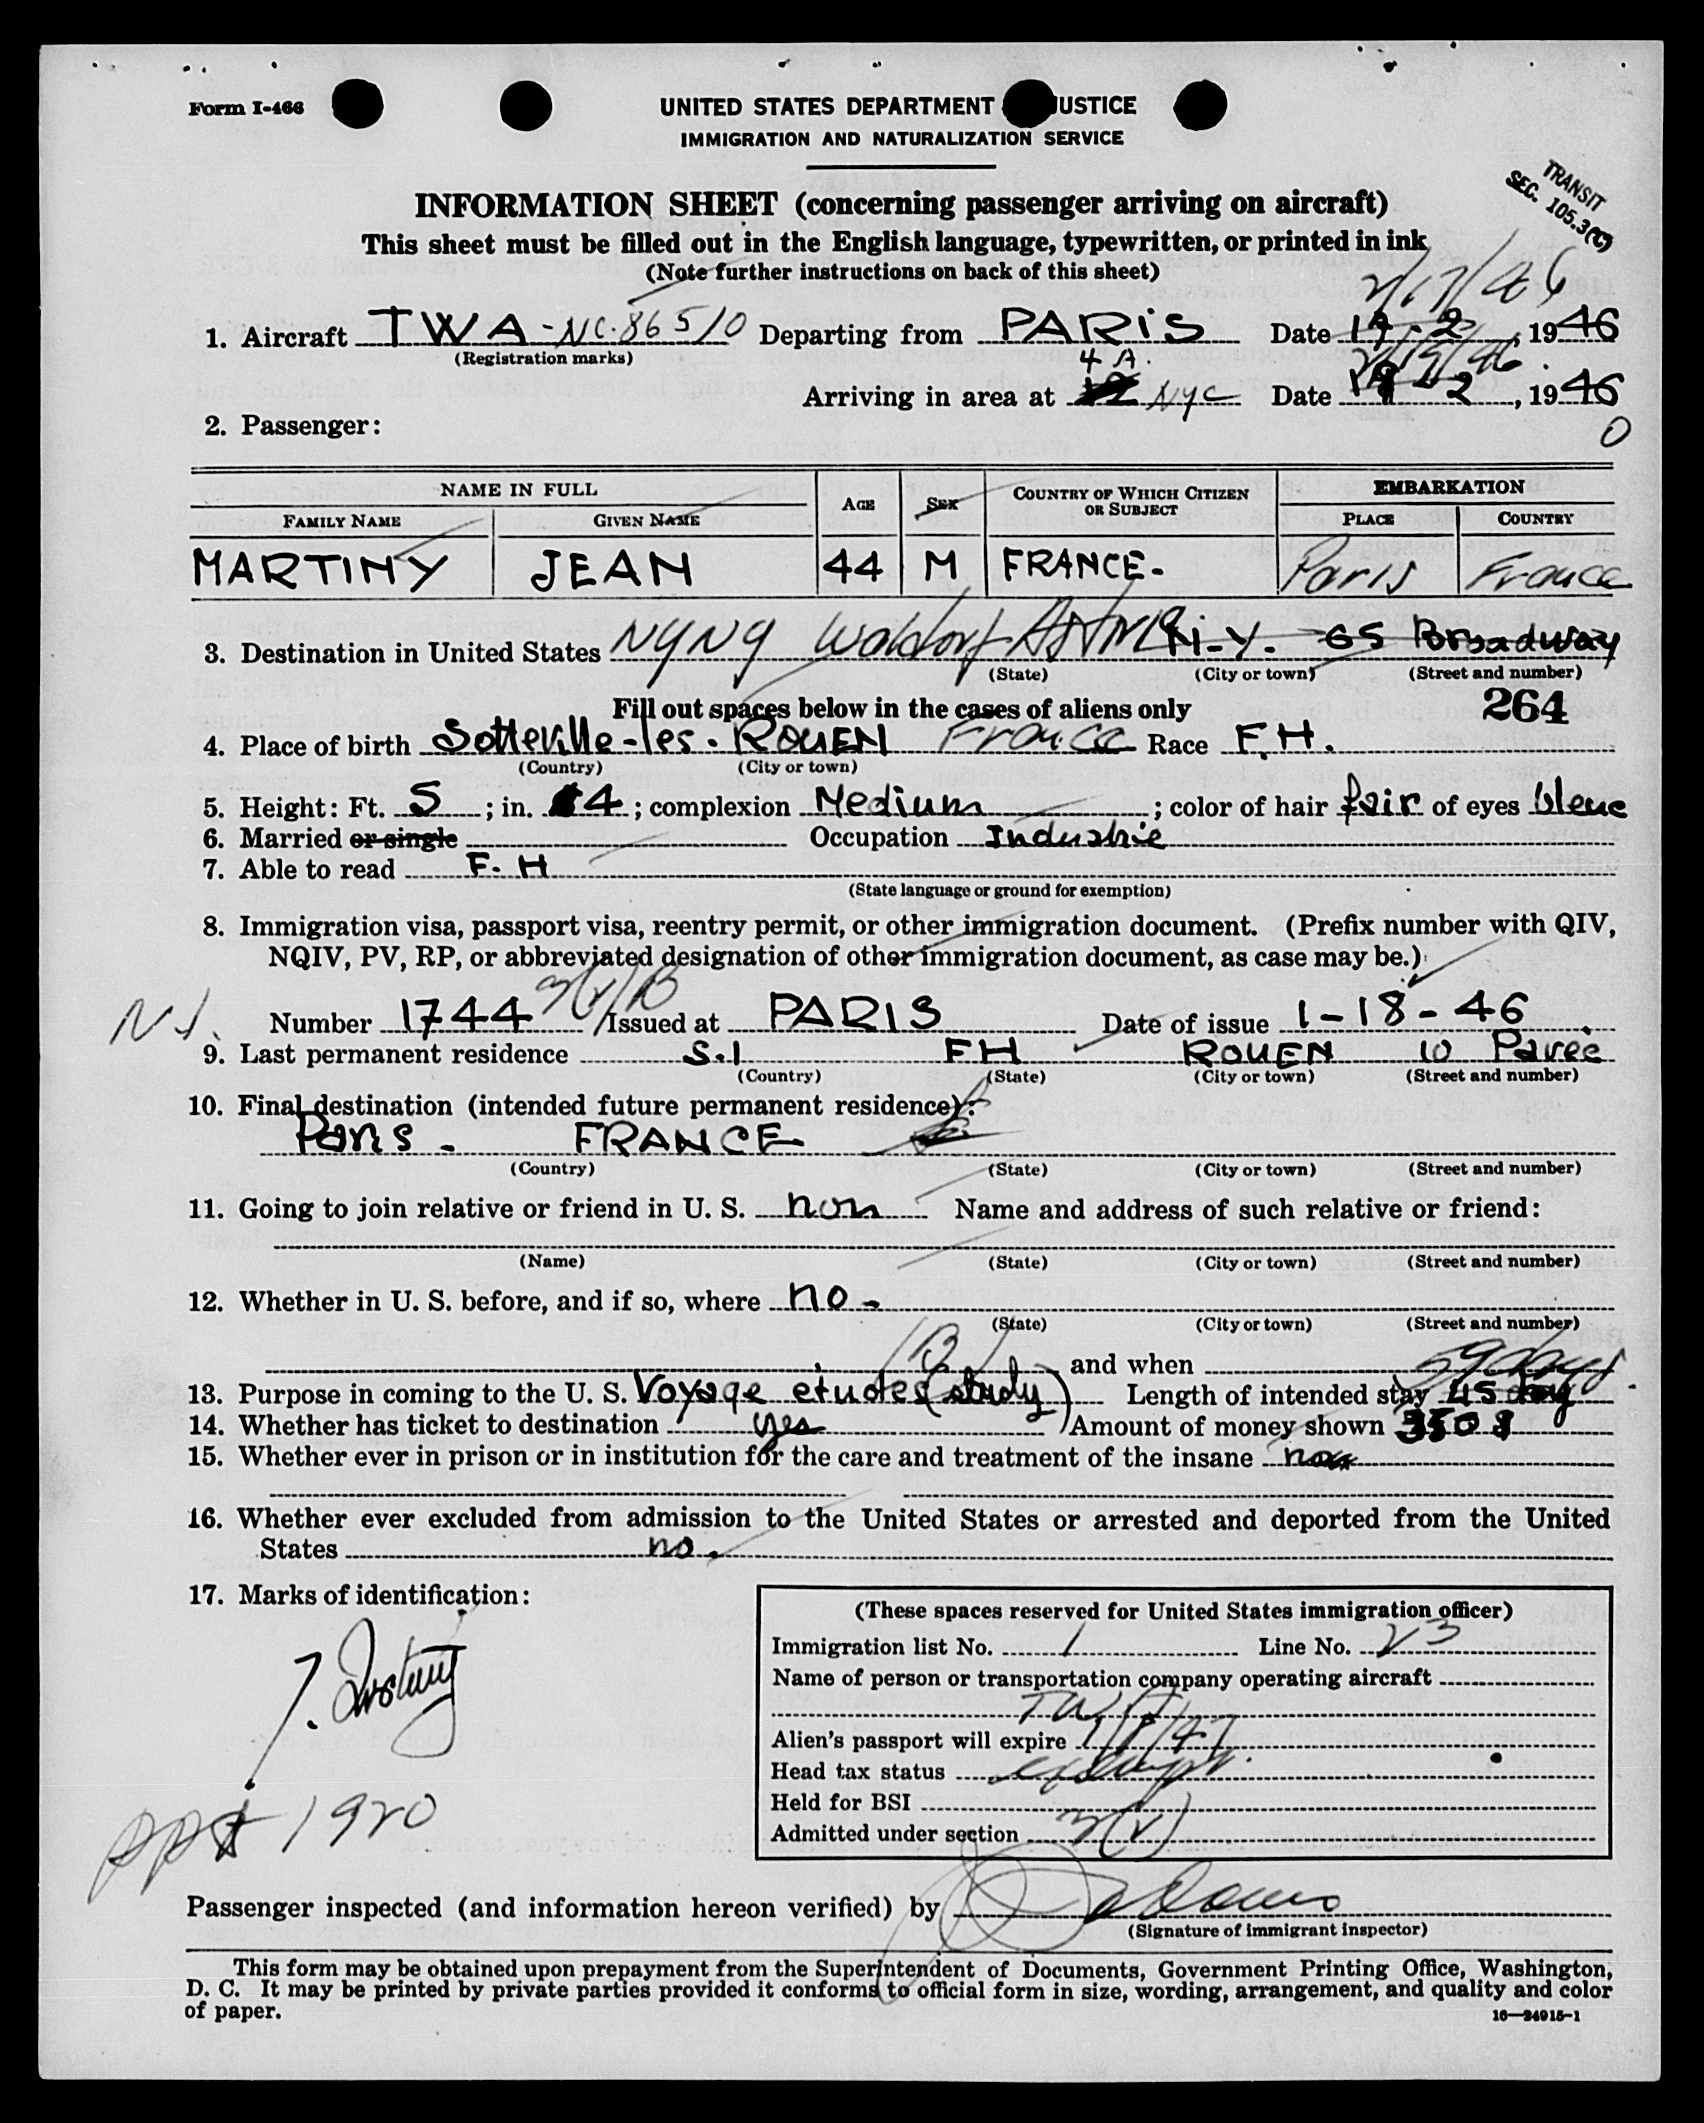 Form I-466
UNITED STATES DEPARTMENT USTICE
IMMIGRATION AND NATURALIZATION SERVICE
TRANSIT
SEC. 105.3(C)
INFORMATION SHEET (concerning passenger arriving on aircraft)
This sheet must be filled out in the English language, typewritten, or printed in ink
(Note further instructions on back of this sheet)
2/17/46
1. Aircraft TWA - NC. 86510 Departing from PARIS Date 2, 1946
(Registration marks)
4 A. 2/19/46
Arriving in area at NYC Date 2, 1946
2. Passenger: 0
NAME IN FULL AGE SEX COUNTRY OF WHICH CITIZEN OR SUBJECT EMBARKATION
FAMILY NAME GIVEN NAME PLACE COUNTRY
MARTINY JEAN 44 M FRANCE- Paris France
3. Destination in United States NYNY Waldorf Astoria N.Y. 65 Broadway
(State) (City or town) (Street and number)
Fill out spaces below in the cases of aliens only 264
4. Place of birth Sotteville-les-ROUEN France Race F.H.
(Country) (City or town)
5. Height: Ft. 5 ; in. 4 ; complexion Medium ; color of hair fair of eyes bleue
6. Married or single Occupation Industrie
7. Able to read F. H
(State language or ground for exemption)
8. Immigration visa, passport visa, reentry permit, or other immigration document. (Prefix number with QIV,
NQIV, PV, RP, or abbreviated designation of other immigration document, as case may be.)
Number 1744 3(2)B Issued at PARIS Date of issue 1-18-46
9. Last permanent residence S.I FH ROUEN 10 Paree
(Country) (State) (City or town) (Street and number)
10. Final destination (intended future permanent residence):
Paris - FRANCE
(Country) (State) (City or town) (Street and number)
11. Going to join relative or friend in U. S. non Name and address of such relative or friend:
(Name) (State) (City or town) (Street and number)
12. Whether in U. S. before, and if so, where no -
(State) (City or town) (Street and number)
and when 59 days
13. Purpose in coming to the U. S. Voyage etudes (study) Length of intended stay 45 day
14. Whether has ticket to destination yes Amount of money shown 350 $
15. Whether ever in prison or in institution for the care and treatment of the insane
16. Whether ever excluded from admission to the United States or arrested and deported from the United
States no.
17. Marks of identification:
(These spaces reserved for United States immigration officer)
Immigration list No. 1 Line No. 23
Name of person or transportation company operating aircraft
TWA
Alien's passport will expire 1/8/47
Head tax status exempt.
Held for BSI
Admitted under section 3(2)
ppt 1920
Passenger inspected (and information hereon verified) by
(Signature of immigrant inspector)
This form may be obtained upon prepayment from the Superintendent of Documents, Government Printing Office, Washington,
D. C. It may be printed by private parties provided it conforms to official form in size, wording, arrangement, and quality and color
of paper. 16—24915-1